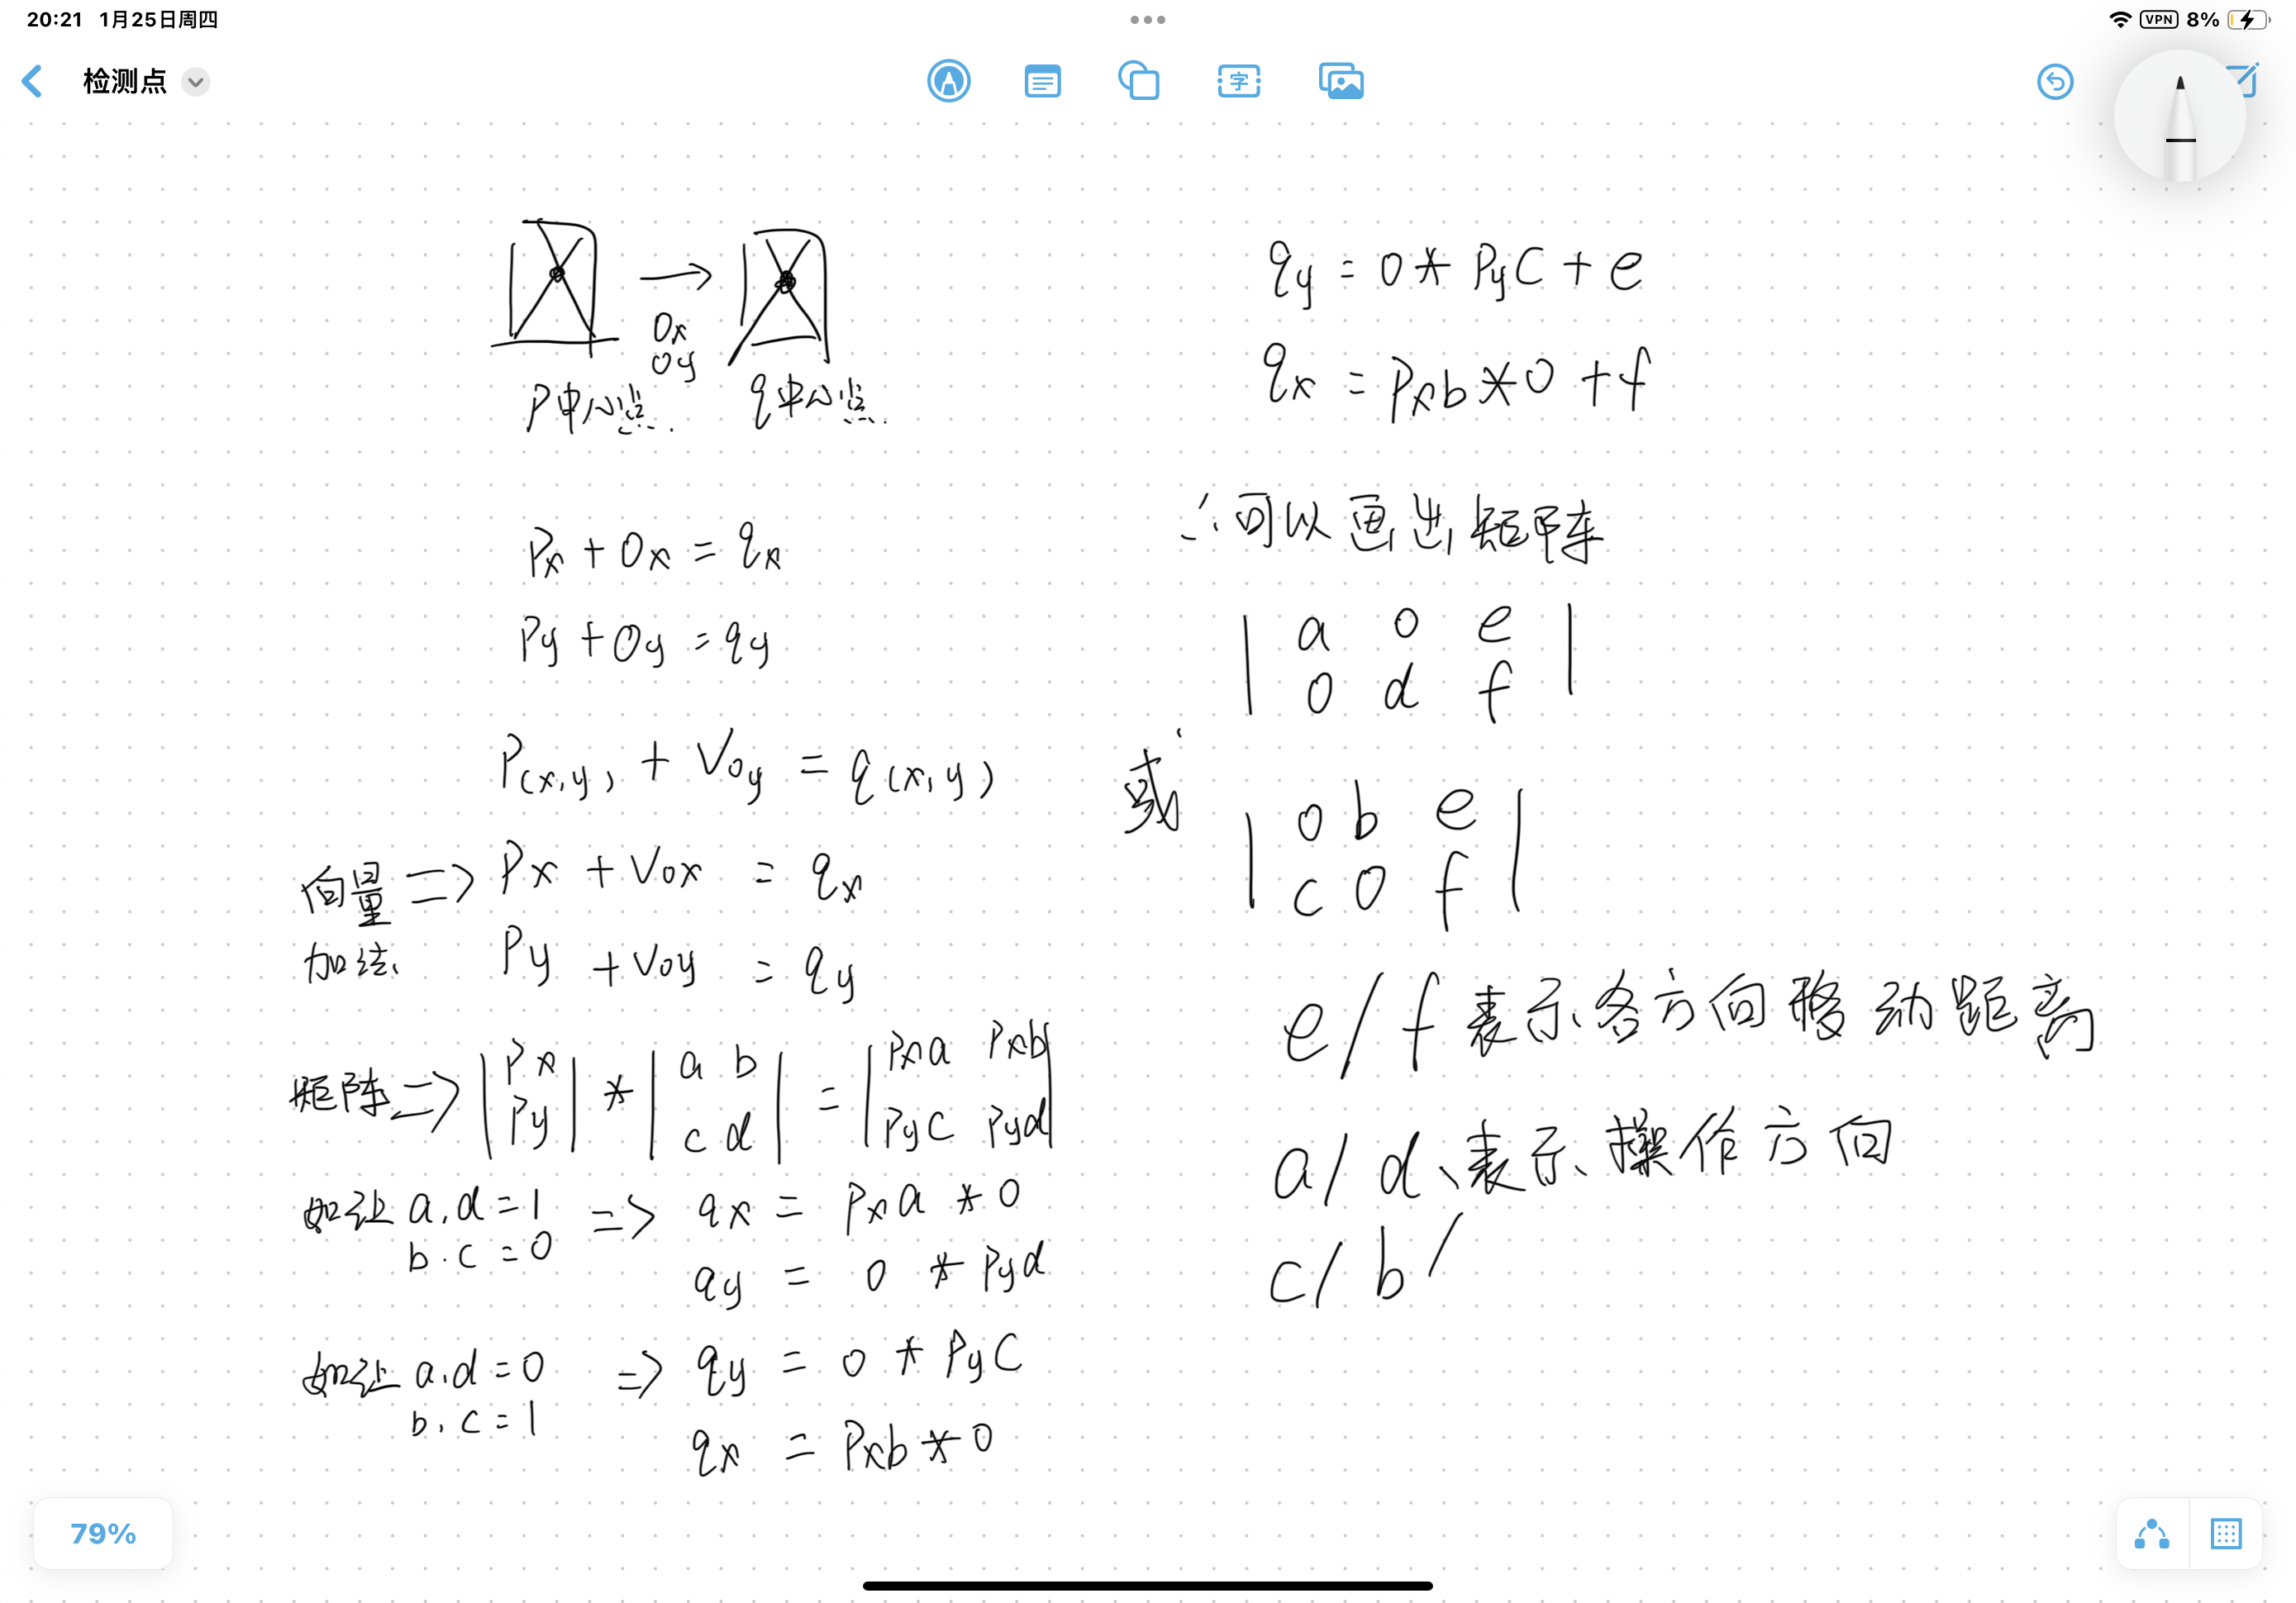 20:21 1月25日周四
VPN 8%
检测点
字
Ox
Oy
P中心点.
q中心点.
Px + Ox = qx
Py + Oy = qy
P(x,y) + Voy = q(x,y)
向量加法 => Px + Vox = qx
Py + Voy = qy
矩阵 => | Px | * | a b | = | Pxa Pxb |
| Py | | c d | | Pyc Pyd |
如让 a,d = 1 => qx = Pxa * 0
b.c = 0 qy = 0 * Pyd
如让 a,d = 0 => qy = 0 * Pyc
b,c = 1 qx = Pxb * 0
qy = 0 * Pyc + e
qx = Pxb * 0 + f
∴可以画出矩阵
| a 0 e |
| 0 d f |
或
| 0 b e |
| c 0 f |
e/f 表示各方向移动距离
a/d 表示操作方向
c/b/
79%